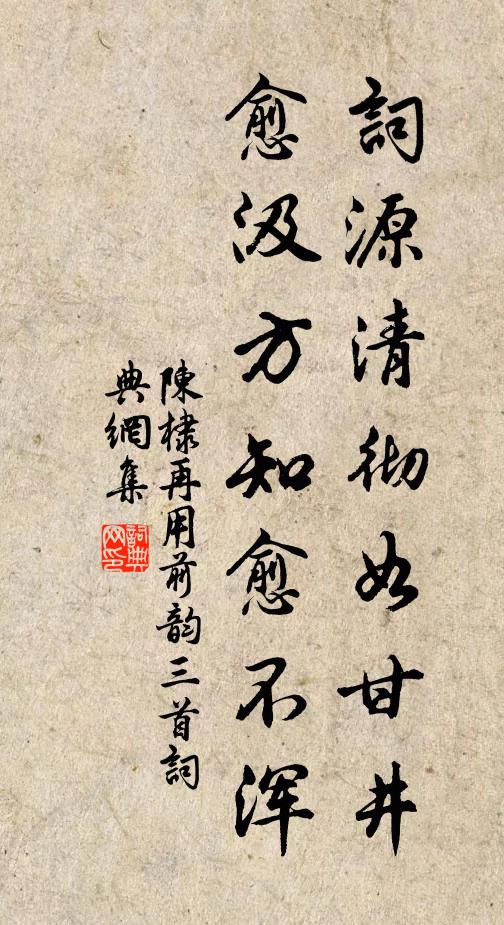 詞源清彻如甘井
愈汲方知愈不浑
陳棣再用前韵三首詞
典網集
詞典網印